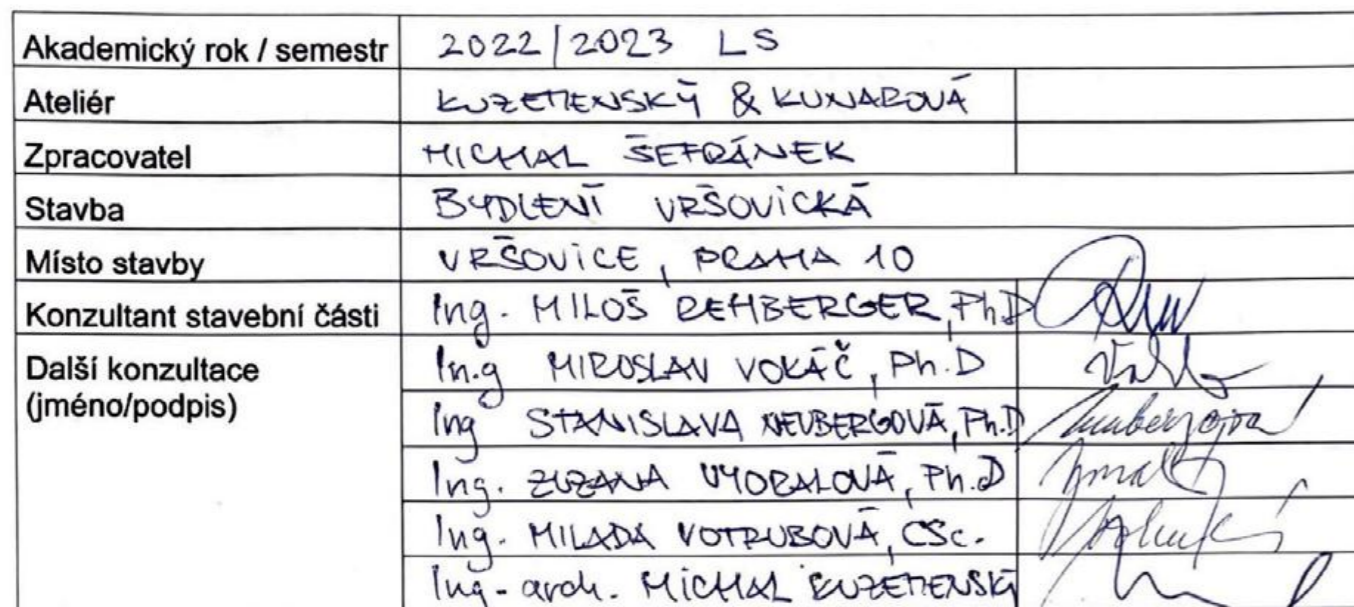 Akademický rok / semestr 2022/2023 LS
Ateliér KUZEMENSKÝ & KUNAROVÁ
Zpracovatel MICHAL ŠEFRÁNEK
Stavba BYDLENÍ VRŠOVICKÁ
Místo stavby VRŠOVICE, PRAHA 10
Konzultant stavební části Ing. MILOŠ REHBERGER, Ph.D
Další konzultace Ing MIROSLAV VOKÁČ, Ph.D
(jméno/podpis)
Ing STANISLAVA NEUBERGOVÁ, Ph.D Neubergová
Ing. ZUZANA VYORALOVÁ, Ph.D
Ing. MILADA VOTRUBOVÁ, CSc.
Ing. arch. MICHAL KUZEMENSKÝ